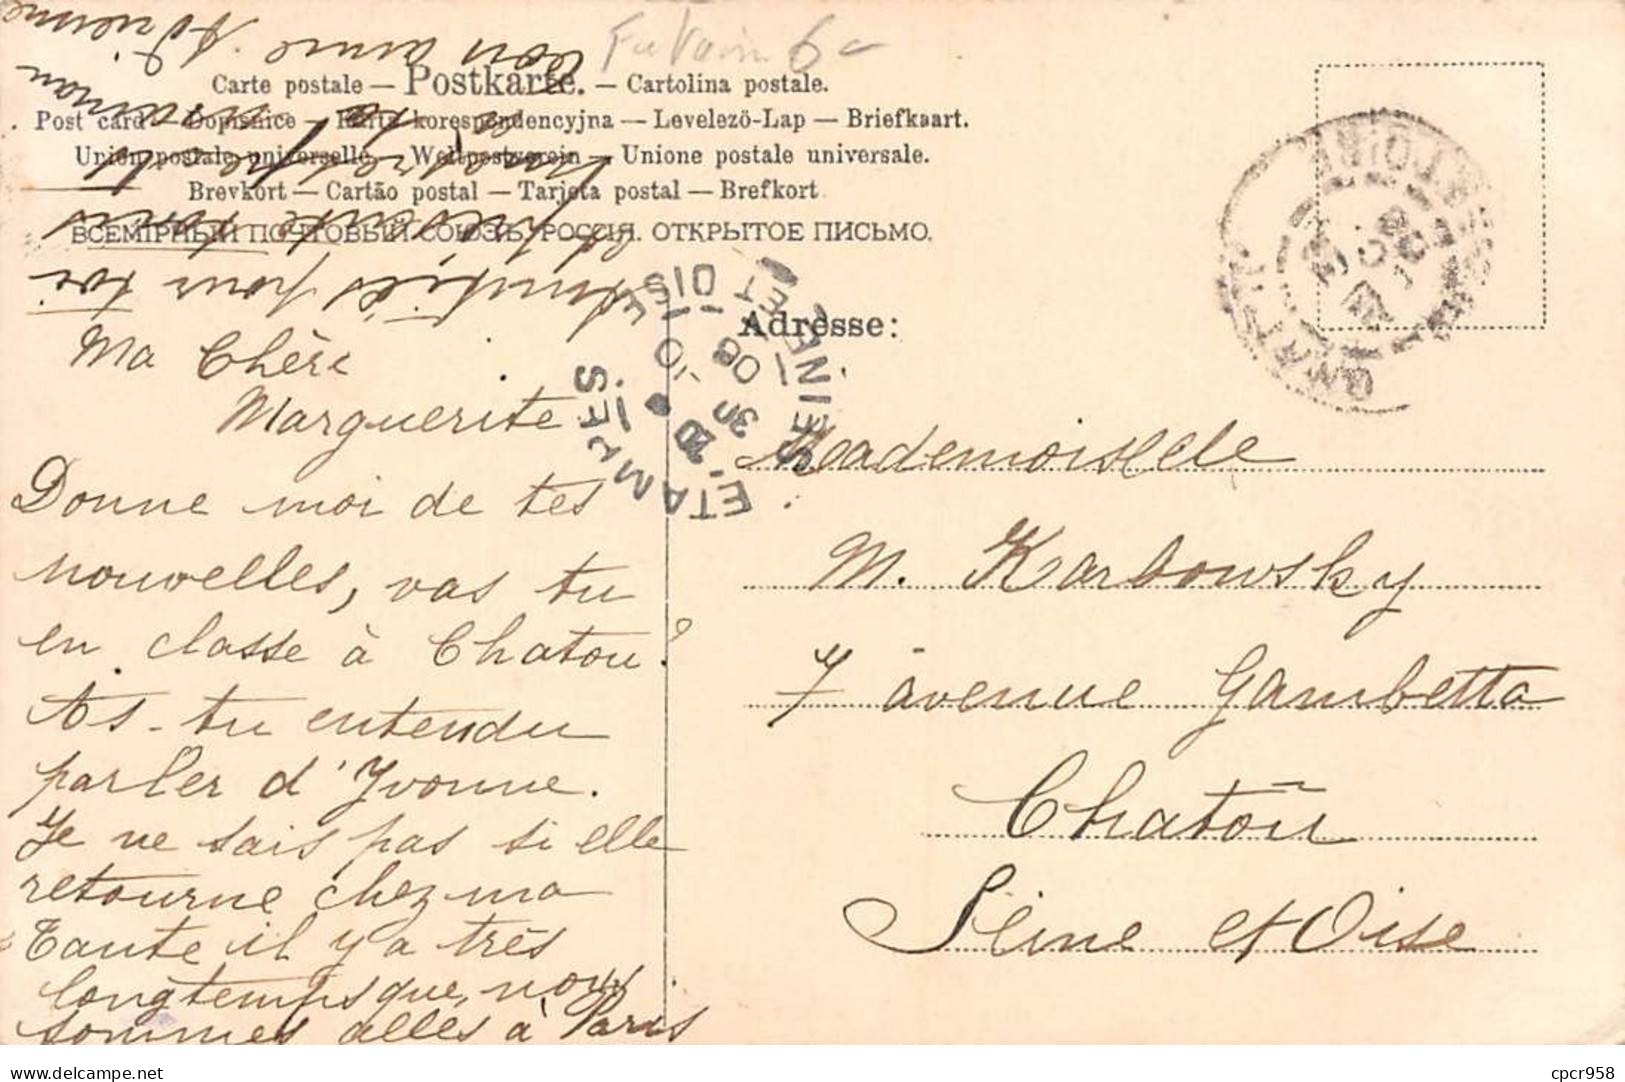 Futvoin 6
Carte postale — Postkarte. — Cartolina postale.
Post card — Dopisnice — Karta korespondencyjna — Levelező-Lap — Briefkaart.
Union postale universelle — Weltpostverein — Unione postale universale.
Brevkort — Cartão postal — Tarjeta postal — Brefkort
ВСЕМІРНЫЙ ПОЧТОВЫЙ СОЮЗЪ. РОССІЯ. ОТКРЫТОЕ ПИСЬМО.
Adresse:
ETAMPES
SEINE ET OISE
30 08
Ma Chère
Marguerite
Donne moi de tes
nouvelles, vas tu
en classe à Chatou?
As-tu entendu
parler d'Yvonne.
Je ne sais pas si elle
retourne chez ma
Tante il y a très
longtemps que nous
sommes allés à Paris
Amitiés pour toi
respects
à ta maman
Ton amie Adrienne
Mademoiselle
M. Karbowsky
7 avenue Gambetta
Chatou
Seine et Oise
cpcr958